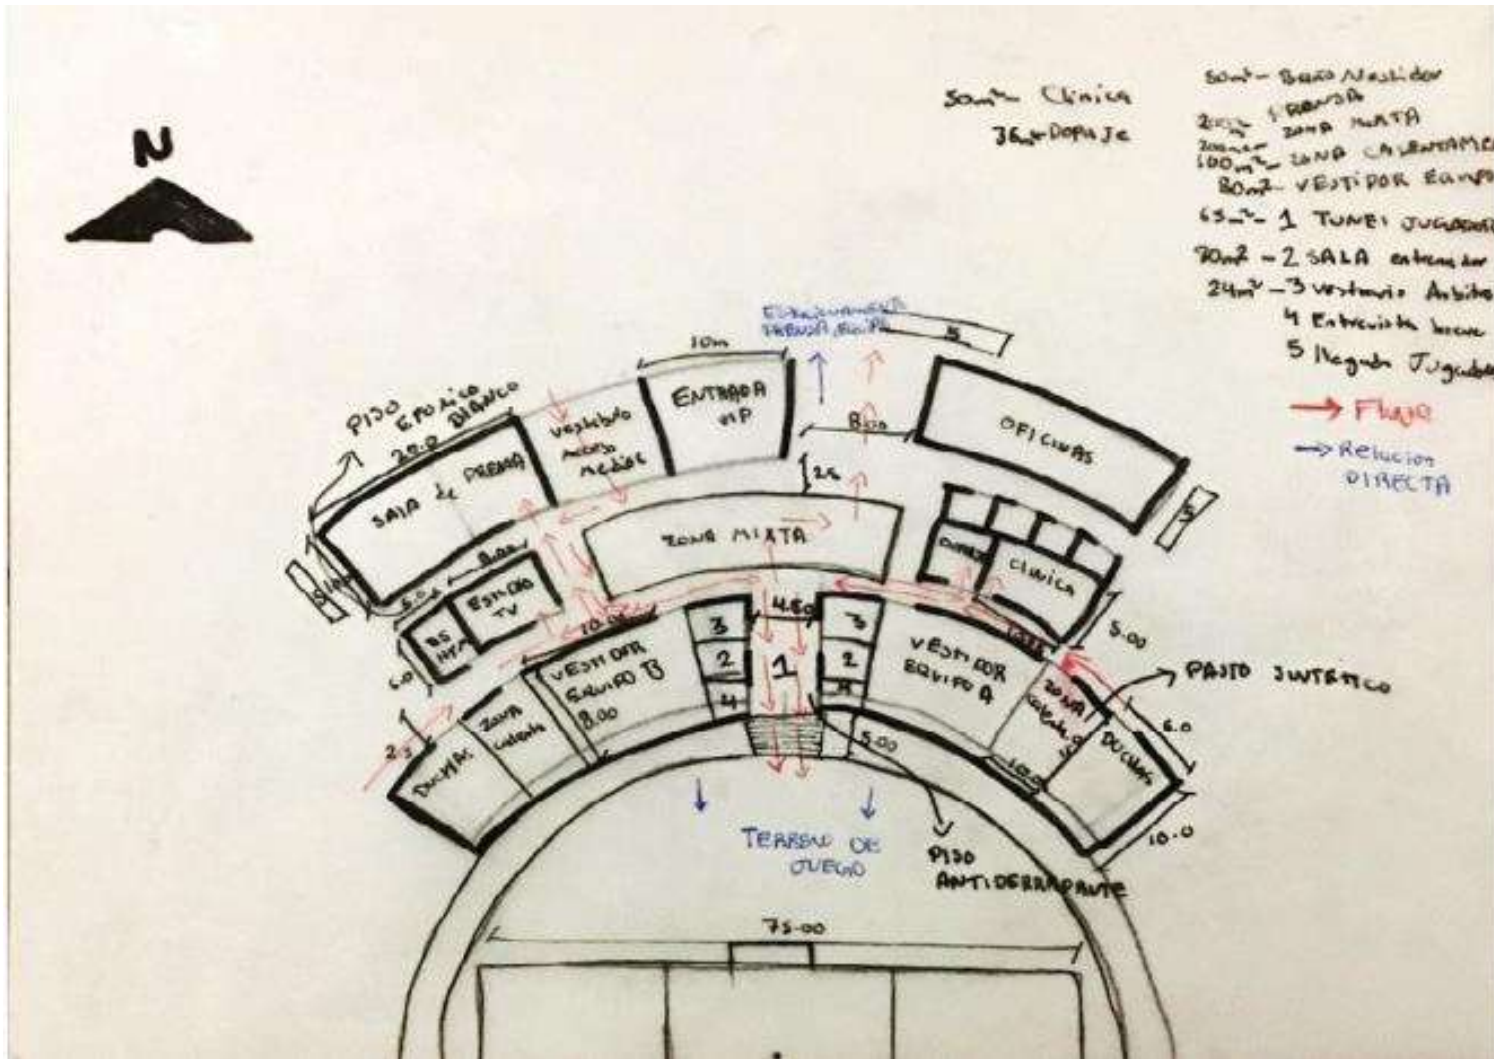 N
50m² - Clinica
36m² DOPAJE
50m² - Baño/Vestidor
200m² PRENSA
200m² ZONA MIXTA
100m² - ZONA CALENTAM
80m² - VESTIDOR EQUIPO
65m² - 1 TUNEl JUGADOR
20m² - 2 SALA entrenador
24m² - 3 vestuario Arbitro
4 Entrevista breve
5 llegada Jugador
→ Flujo
→ Relacion
DIRECTA
ESTACIONAMIENTO
PRENSA
10m
5
PISO
EPOXICO
BLANCO
SALA de PRENSA
Vestibulo
acceso
Medios
ENTRADA
VIP
8.00
OFICINAS
25
5
ZONA MIXTA
CLINICA
5
ESTUDIO
TV
BS
6.0
10.00
4.50
5.00
3
2
4
1
3
2
4
VESTIDOR
EQUIPO B
8.00
VESTIDOR
EQUIPO A
ZONA
calenta
10.0
PASTO SINTETICO
DUCHAS
ZONA
calenta
DUCHAS
6.0
5.00
10.0
TERRENO DE
JUEGO
PISO
ANTIDERRAPANTE
75.00